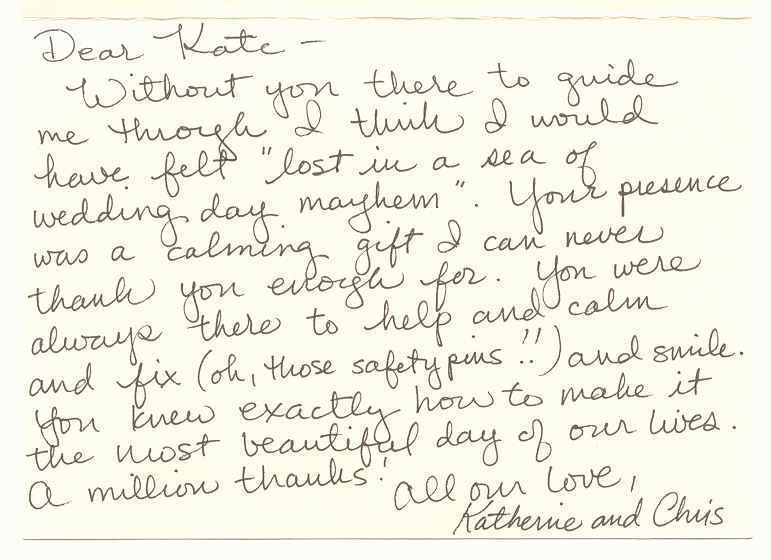 Dear Kate –
Without you there to guide
me through I think I would
have felt "lost in a sea of
wedding day mayhem". Your presence
was a calming gift I can never
thank you enough for. You were
always there to help and calm
and fix (oh, those safety pins!!) and smile.
You knew exactly how to make it
the most beautiful day of our lives.
A million thanks!
All our love,
Katherine and Chris